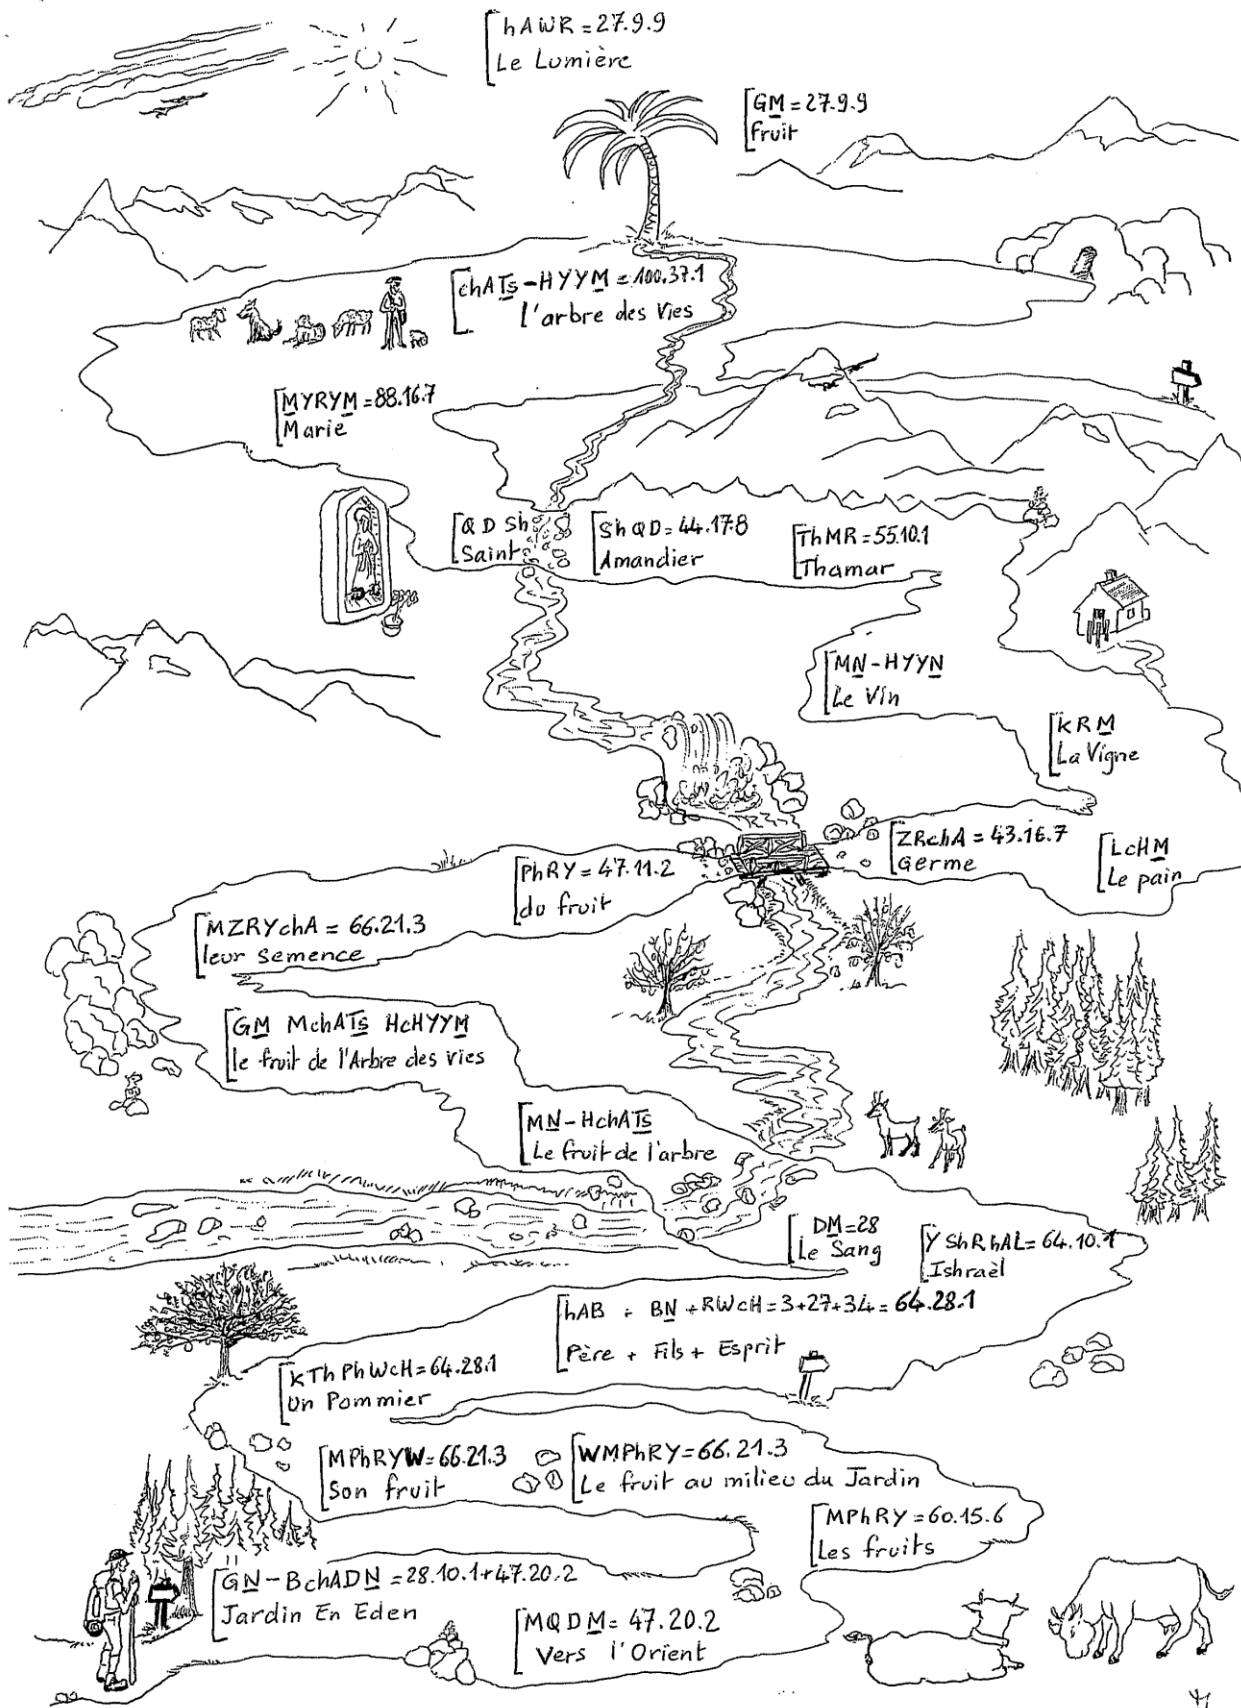 hAWR = 27.9.9
Le Lumière
GM = 27.9.9
fruit
chATs-HYYM = 100.37.1
l'arbre des Vies
MYRYM = 88.16.7
Marie
QD Sh
Saint
ShQD = 44.17.8
Amandier
ThMR = 55.10.1
Thamar
MN-HYYN
Le Vin
KRM
La Vigne
ZRchA = 43.16.7
Germe
LcHM
Le pain
PhRY = 47.11.2
du fruit
MZRYchA = 66.21.3
leur semence
GM MchATs HcHYYM
le fruit de l'Arbre des vies
MN-HchATs
Le fruit de l'arbre
DM = 28
Le Sang
YShRhAL = 64.10.1
Ishraèl
hAB + BN + RWcH = 3+27+34 = 64.28.1
Père + Fils + Esprit
KThPhWcH = 64.28.1
Un Pommier
MPhRYW = 66.21.3
Son fruit
WMPhRY = 66.21.3
Le fruit au milieu du Jardin
MPhRY = 60.15.6
Les fruits
GN-BchADN = 28.10.1+47.20.2
Jardin En Eden
MQDM = 47.20.2
Vers l'Orient